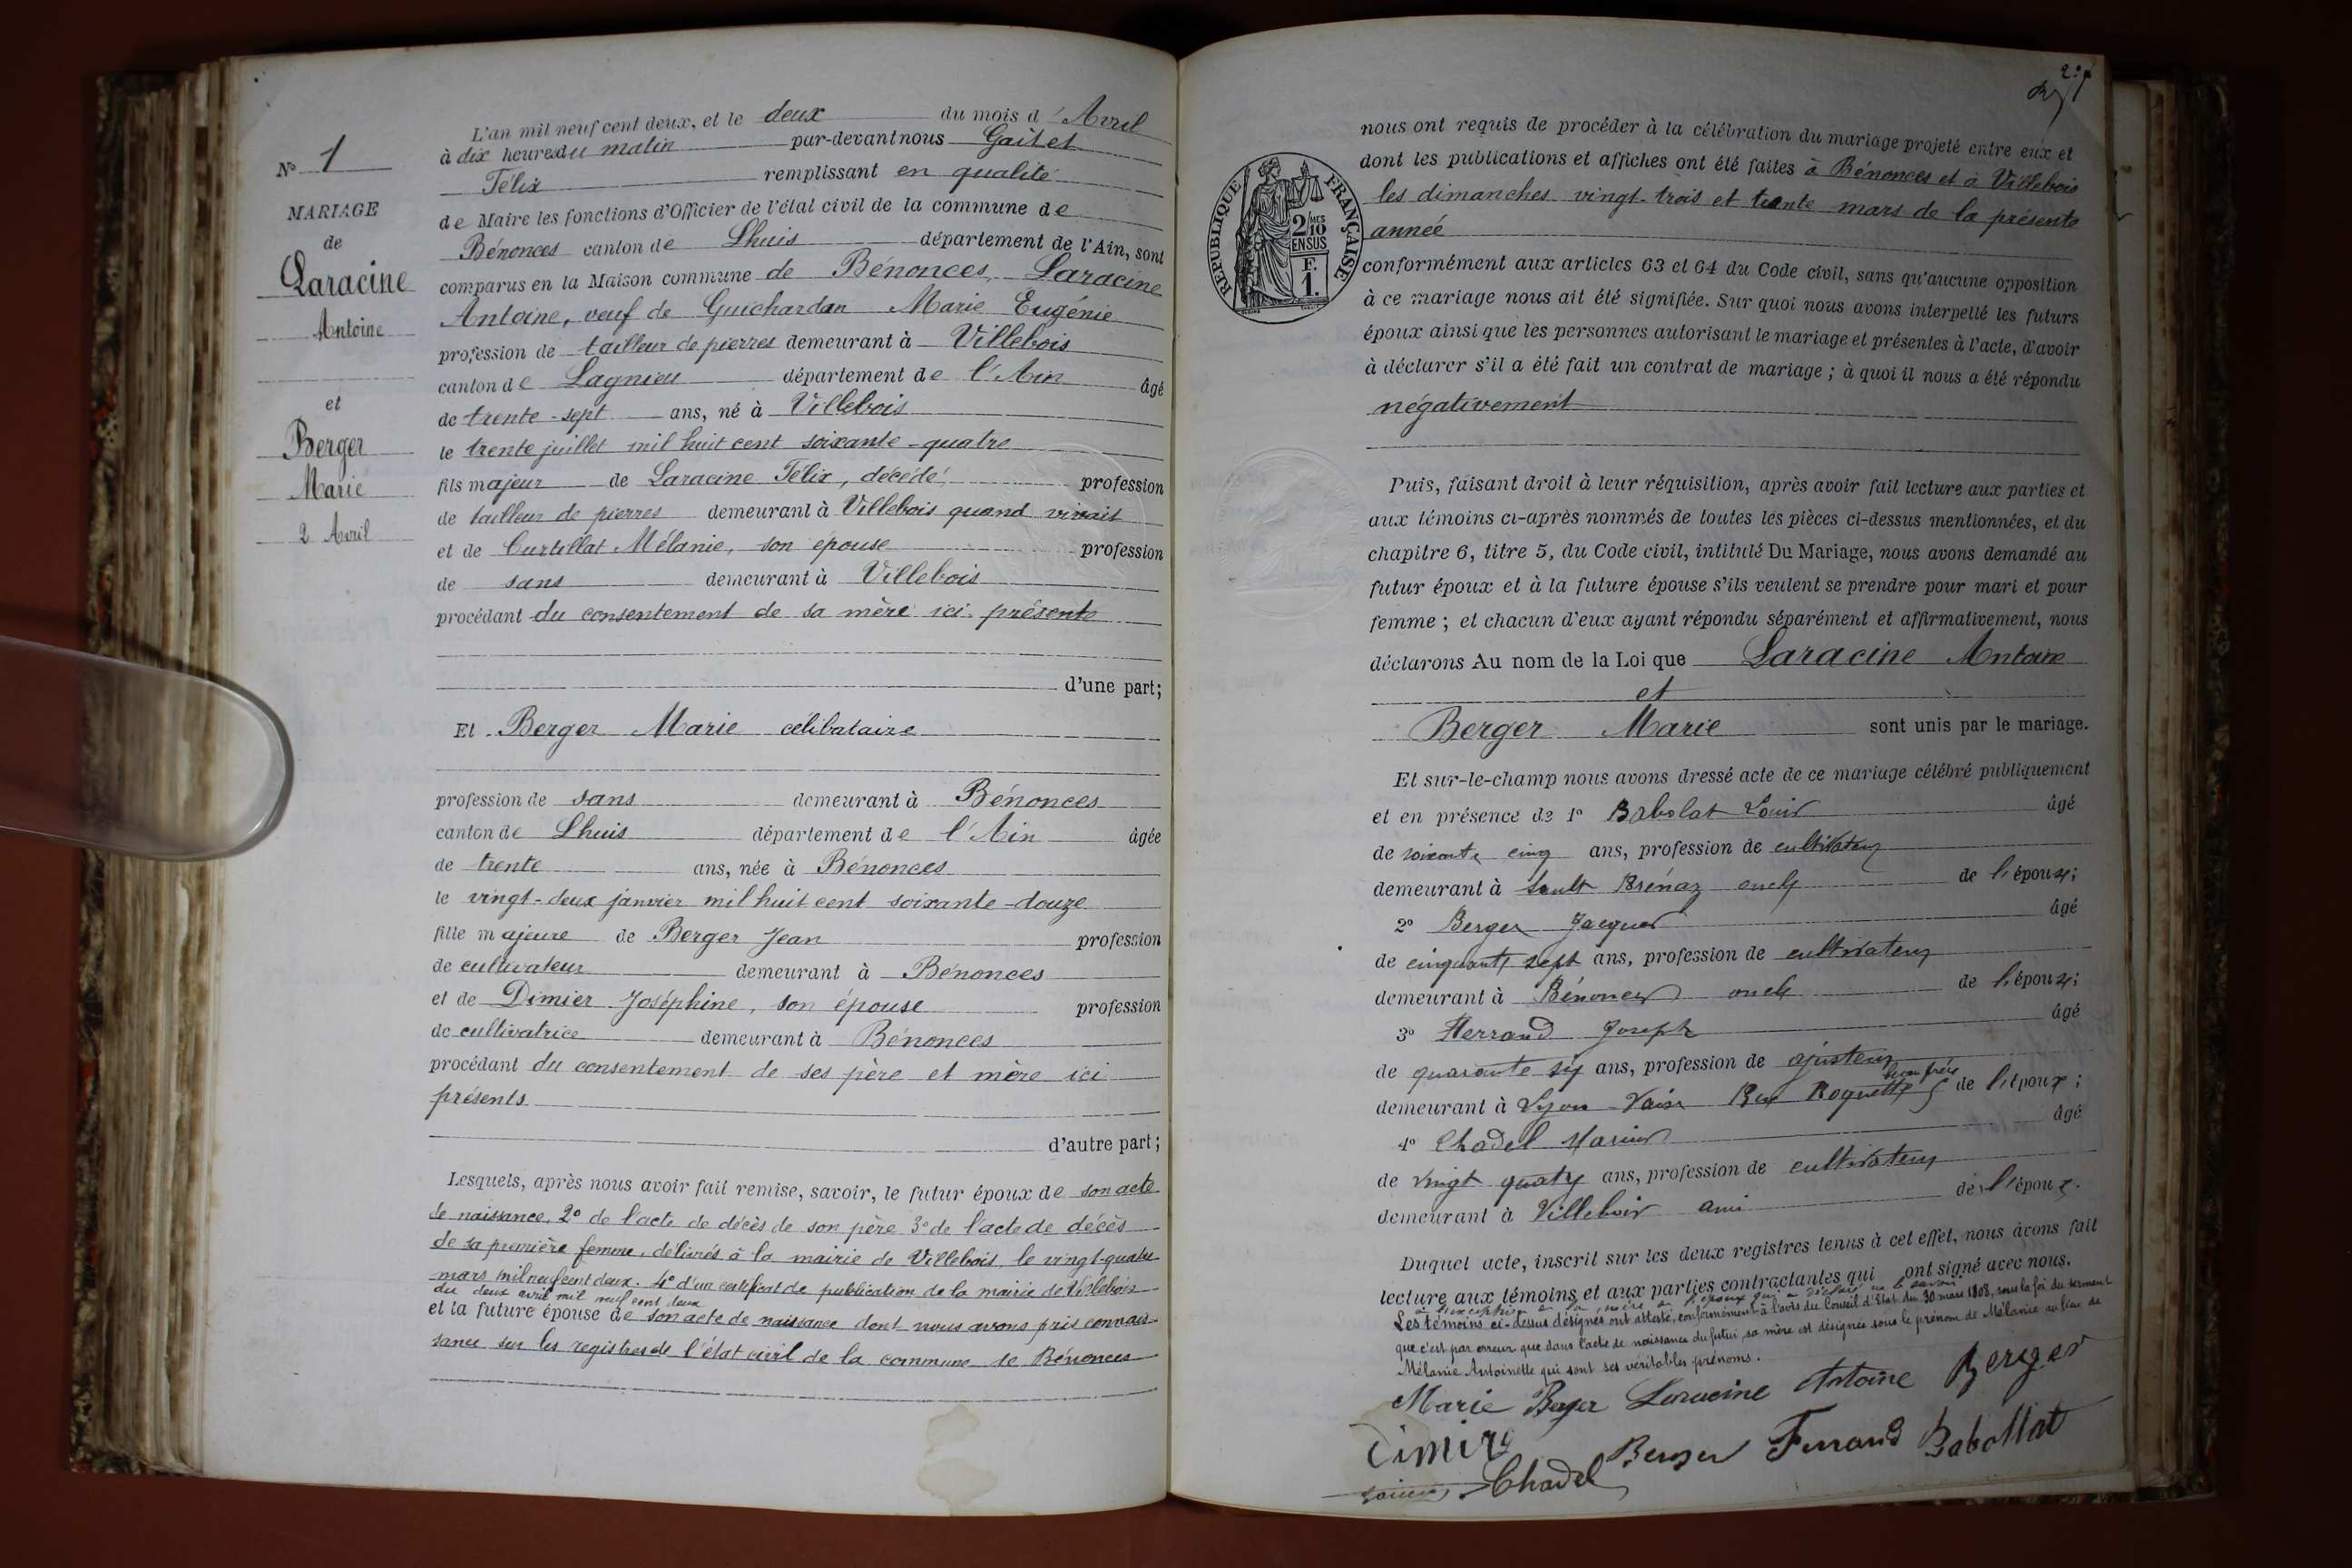 N° 1
MARIAGE
de
Laracine
Antoine
et
Berger
Marie
2 Avril
L'an mil neuf cent deux, et le deux du mois d'Avril
à dix heures du matin par-devant nous Gaitet
Félix remplissant en qualité
de Maire les fonctions d'Officier de l'état civil de la commune de
Bénonces canton de Lhuis département de l'Ain, sont
comparus en la Maison commune de Bénonces, Laracine
Antoine, veuf de Guichardan Marie Eugénie
profession de tailleur de pierres demeurant à Villebois
canton de Lagnieu département de l'Ain âgé
de trente-sept ans, né à Villebois
le trente juillet mil huit cent soixante-quatre
fils majeur de Laracine Félix, décédé, profession
de tailleur de pierres demeurant à Villebois quand vivait
et de Curtillat Mélanie, son épouse profession
de sans demeurant à Villebois
procédant du consentement de sa mère ici présente
d'une part;
Et Berger Marie célibataire
profession de sans demeurant à Bénonces
canton de Lhuis département de l'Ain âgée
de trente ans, née à Bénonces
le vingt-deux janvier mil huit cent soixante-douze
fille majeure de Berger Jean profession
de cultivateur demeurant à Bénonces
et de Dimier Joséphine, son épouse profession
de cultivatrice demeurant à Bénonces
procédant du consentement de ses père et mère ici
présents
d'autre part;
Lesquels, après nous avoir fait remise, savoir, le futur époux de son acte
de naissance, 2° de l'acte de décès de son père 3° de l'acte de décès
de sa première femme, délivrés à la mairie de Villebois le vingt-quatre
mars mil neuf cent deux. 4° d'un certificat de publication de la mairie de Villebois
du deux avril mil neuf cent deux
et la future épouse de son acte de naissance dont nous avons pris connais-
sance sur les registres de l'état civil de la commune de Bénonces
2°
RÉPUBLIQUE FRANÇAISE
2 MES
10
EN SUS
F.
1.
nous ont requis de procéder à la célébration du mariage projeté entre eux et
dont les publications et affiches ont été faites à Bénonces et à Villebois
les dimanches vingt-trois et trente mars de la présente
année
conformément aux articles 63 et 64 du Code civil, sans qu'aucune opposition
à ce mariage nous ait été signifiée. Sur quoi nous avons interpellé les futurs
époux ainsi que les personnes autorisant le mariage et présentes à l'acte, d'avoir
à déclarer s'il a été fait un contrat de mariage ; à quoi il nous a été répondu
négativement
Puis, faisant droit à leur réquisition, après avoir fait lecture aux parties et
aux témoins ci-après nommés de toutes les pièces ci-dessus mentionnées, et du
chapitre 6, titre 5, du Code civil, intitulé Du Mariage, nous avons demandé au
futur époux et à la future épouse s'ils veulent se prendre pour mari et pour
femme ; et chacun d'eux ayant répondu séparément et affirmativement, nous
déclarons Au nom de la Loi que Laracine Antoine
et
Berger Marie sont unis par le mariage.
Et sur-le-champ nous avons dressé acte de ce mariage célébré publiquement
et en présence de 1° Babolat Louis âgé
de soixante cinq ans, profession de cultivateur
demeurant à Sault Brénaz oncle de l'épouse;
2° Berger Jacques âgé
de cinquante sept ans, profession de cultivateur
demeurant à Bénonces oncle de l'épouse;
3° Ferrand Joseph âgé
de quarante six ans, profession de ajusteur
beau frère
demeurant à Lyon Vaise Rue Roquette 5 de l'époux;
4° Chadel Marius âgé
de vingt quatre ans, profession de cultivateur
demeurant à Villebois ami de l'époux.
Duquel acte, inscrit sur les deux registres tenus à cet effet, nous avons fait
lecture aux témoins et aux parties contractantes qui ont signé avec nous.
à l'exception de la mère de l'époux qui a déclaré ne le savoir
Les témoins ci-dessus désignés ont attesté, conformément à l'avis du Conseil d'Etat du 30 mars 1808, sous la foi du serment
que c'est par erreur que dans l'acte de naissance du futur, sa mère est désignée sous le prénom de Mélanie au lieu de
Mélanie Antoinette qui sont ses véritables prénoms.
Marie Berger Laracine Antoine Berger
Dimier Berger Ferrand Babollat
Chadel